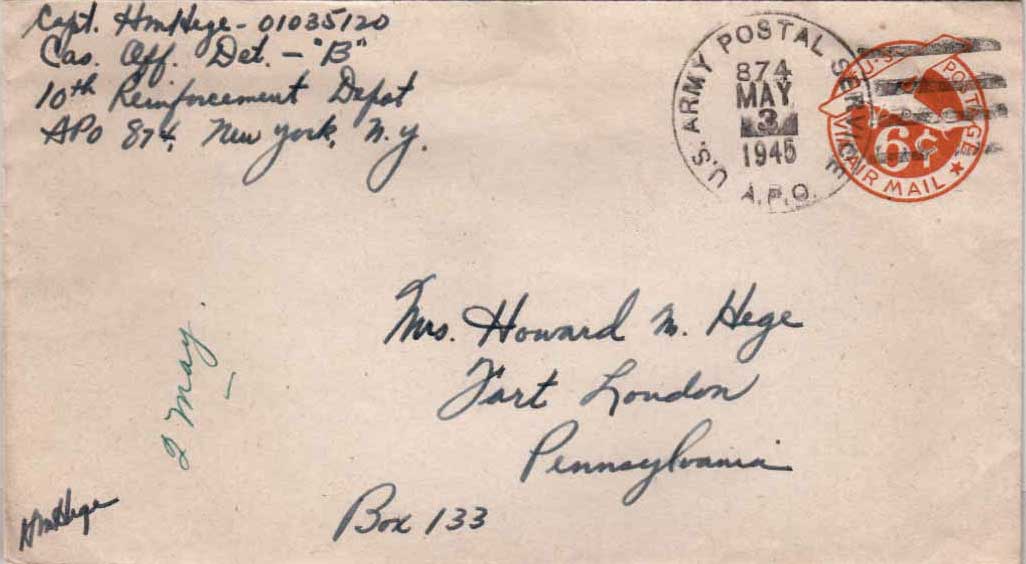 Capt. HmHege - 01035120
Cas. Off. Det. - "B"
10th Reinforcement Depot
APO 874, New York, N.Y.
U.S. ARMY POSTAL SERVICE
874
MAY
3
1945
A.P.O.
U.S. POSTAGE
6¢
AIR MAIL
Mrs. Howard M. Hege
Fort Loudon
Pennsylvania
Box 133
2 May
HmHege